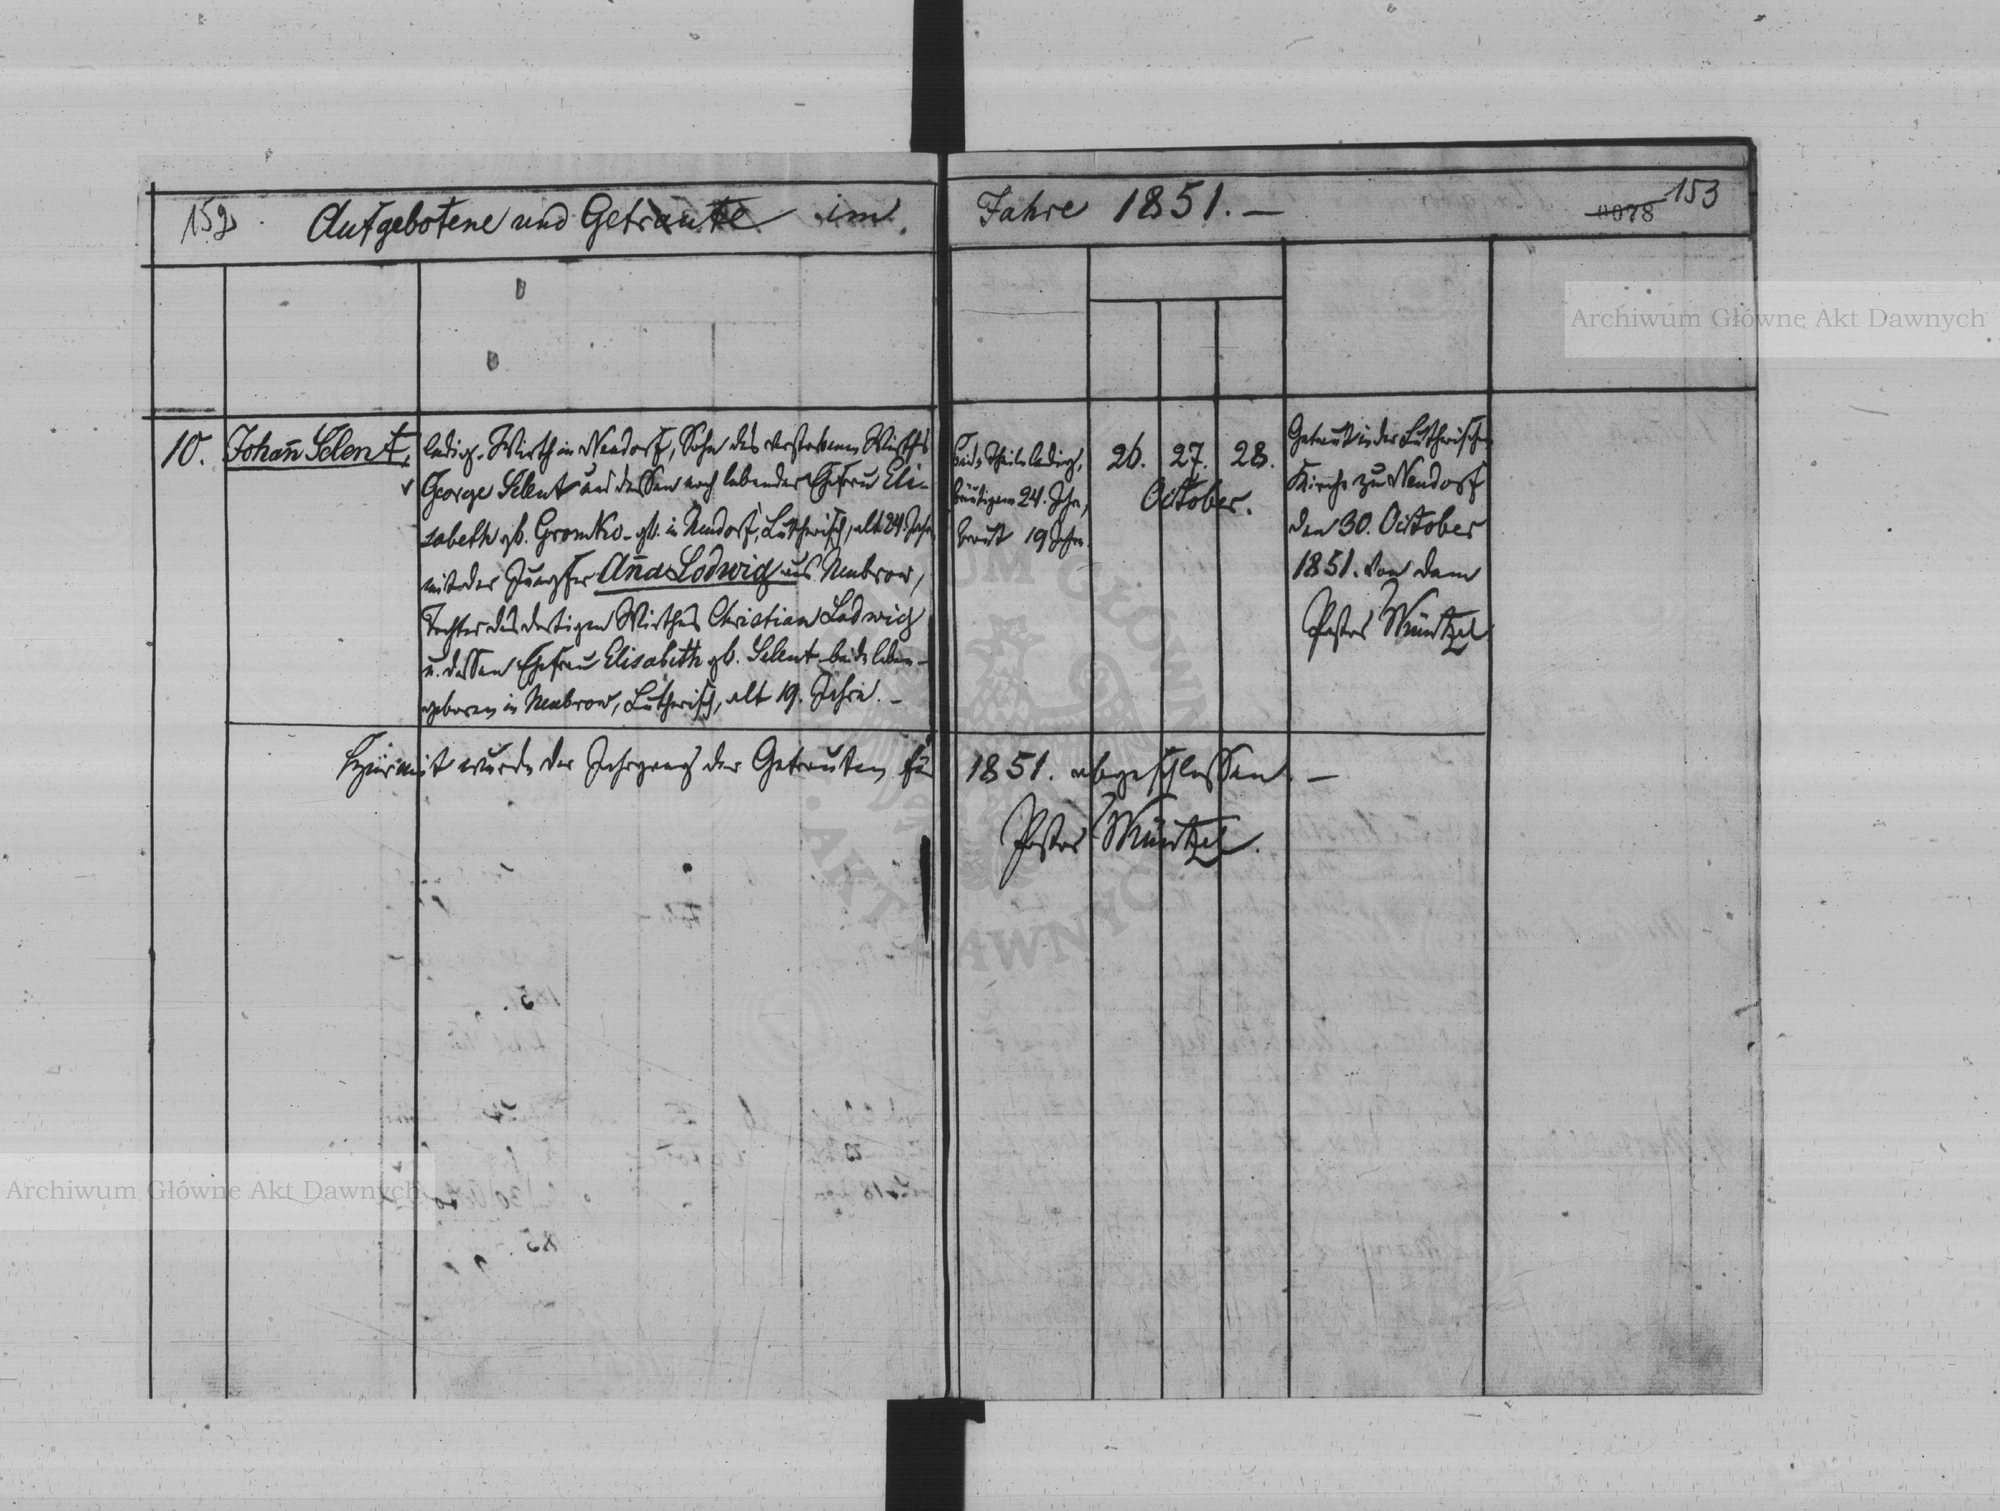 152. Aufgebotene und Getraute im
Jahre 1851. —
0078 153
Archiwum Główne Akt Dawnych
10. Johañ Selent,
ledig. Wirth in Neudorf, Sohn des verstorbenen Wirths
George Selent und dessen noch lebender Ehefrau Eli-
sabeth gb. Gromko – gb. in Neudorf, Lutherisch, alt 24. Jahr
mit der Jungfer Aña Lodwig aus Neubrow,
Tochter des dortigen Wirthes Christian Lodwig
u. dessen Ehefrau Elisabeth gb. Selent – beide leben –
geboren in Neubrow, Lutherisch, alt 19. Jahre. –
Beide Theile ledig,
Bräutigam 24. Jhr,
Braut 19 Jhr.
26. 27. 28.
October.
Getraut in der Lutherischen
Kirche zu Neudorf
den 30. October
1851. von dem
Pastor Müntzel
Hiermit wurde der Jahrgang der Getrauten für 1851. abgeschlossen. —
Pastor Müntzel.
Archiwum Główne Akt Dawnych